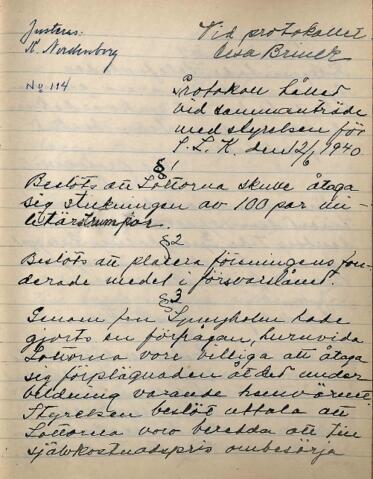 Justeras:
N. Nordenborg
Vid protokollet
Lisa Brinck
No 114
Protokoll hållet
vid sammanträde
med styrelsen för
S. L. K. den 12/6 1940.
§ 1
Beslöts att Lottorna skulle åtaga
sig stickningen av 100 par mi-
litärstrumpor.
§ 2
Beslöts att placera föreningens fon-
derade medel i försvarslånet.
§ 3
Genom fru hade
gjorts en förfrågan, huruvida
Lottorna vore villiga att åtaga
sig förplägnaden åt det under
bildning varande hemvärnet.
Styrelsen beslöt uttala att
Lottorna voro beredda att till
självkostnadspris ombesörja